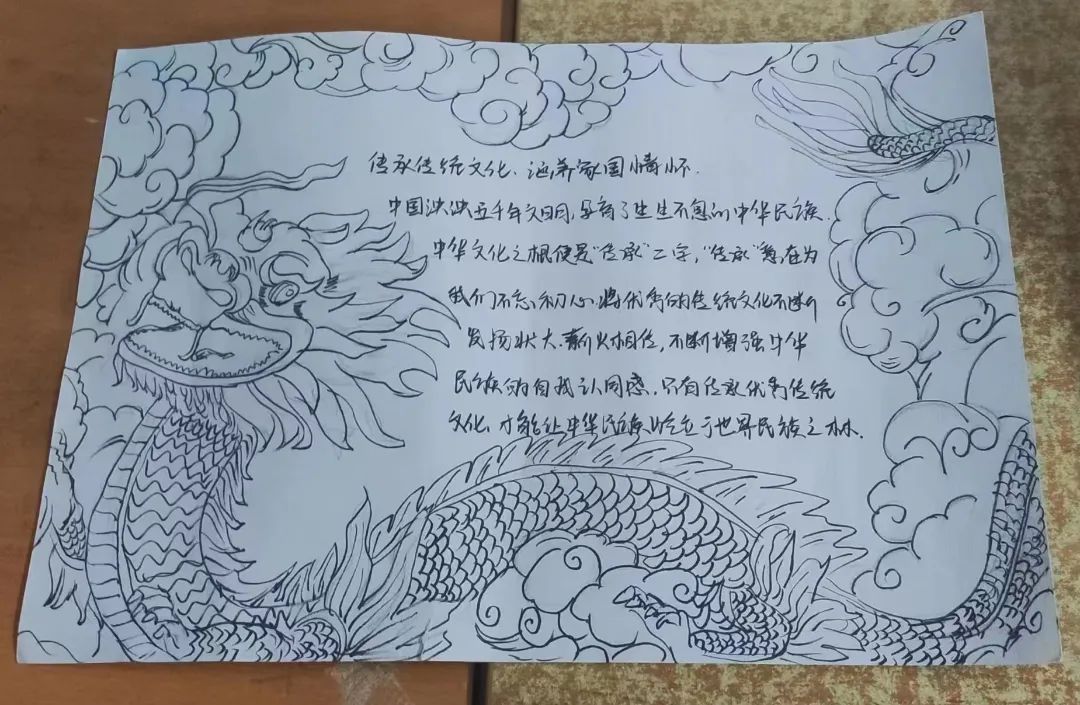 传承传统文化、涵养家国情怀.
中国泱泱五千年文明,孕育了生生不息的中华民族.
中华文化之根便是“传承”二字,“传承”意在为
我们不忘初心.将优秀的传统文化不断
发扬状大.薪火相传,不断增强中华
民族的自我认同感.只有传承优秀传统
文化、才能让中华民族屹立于世界民族之林.